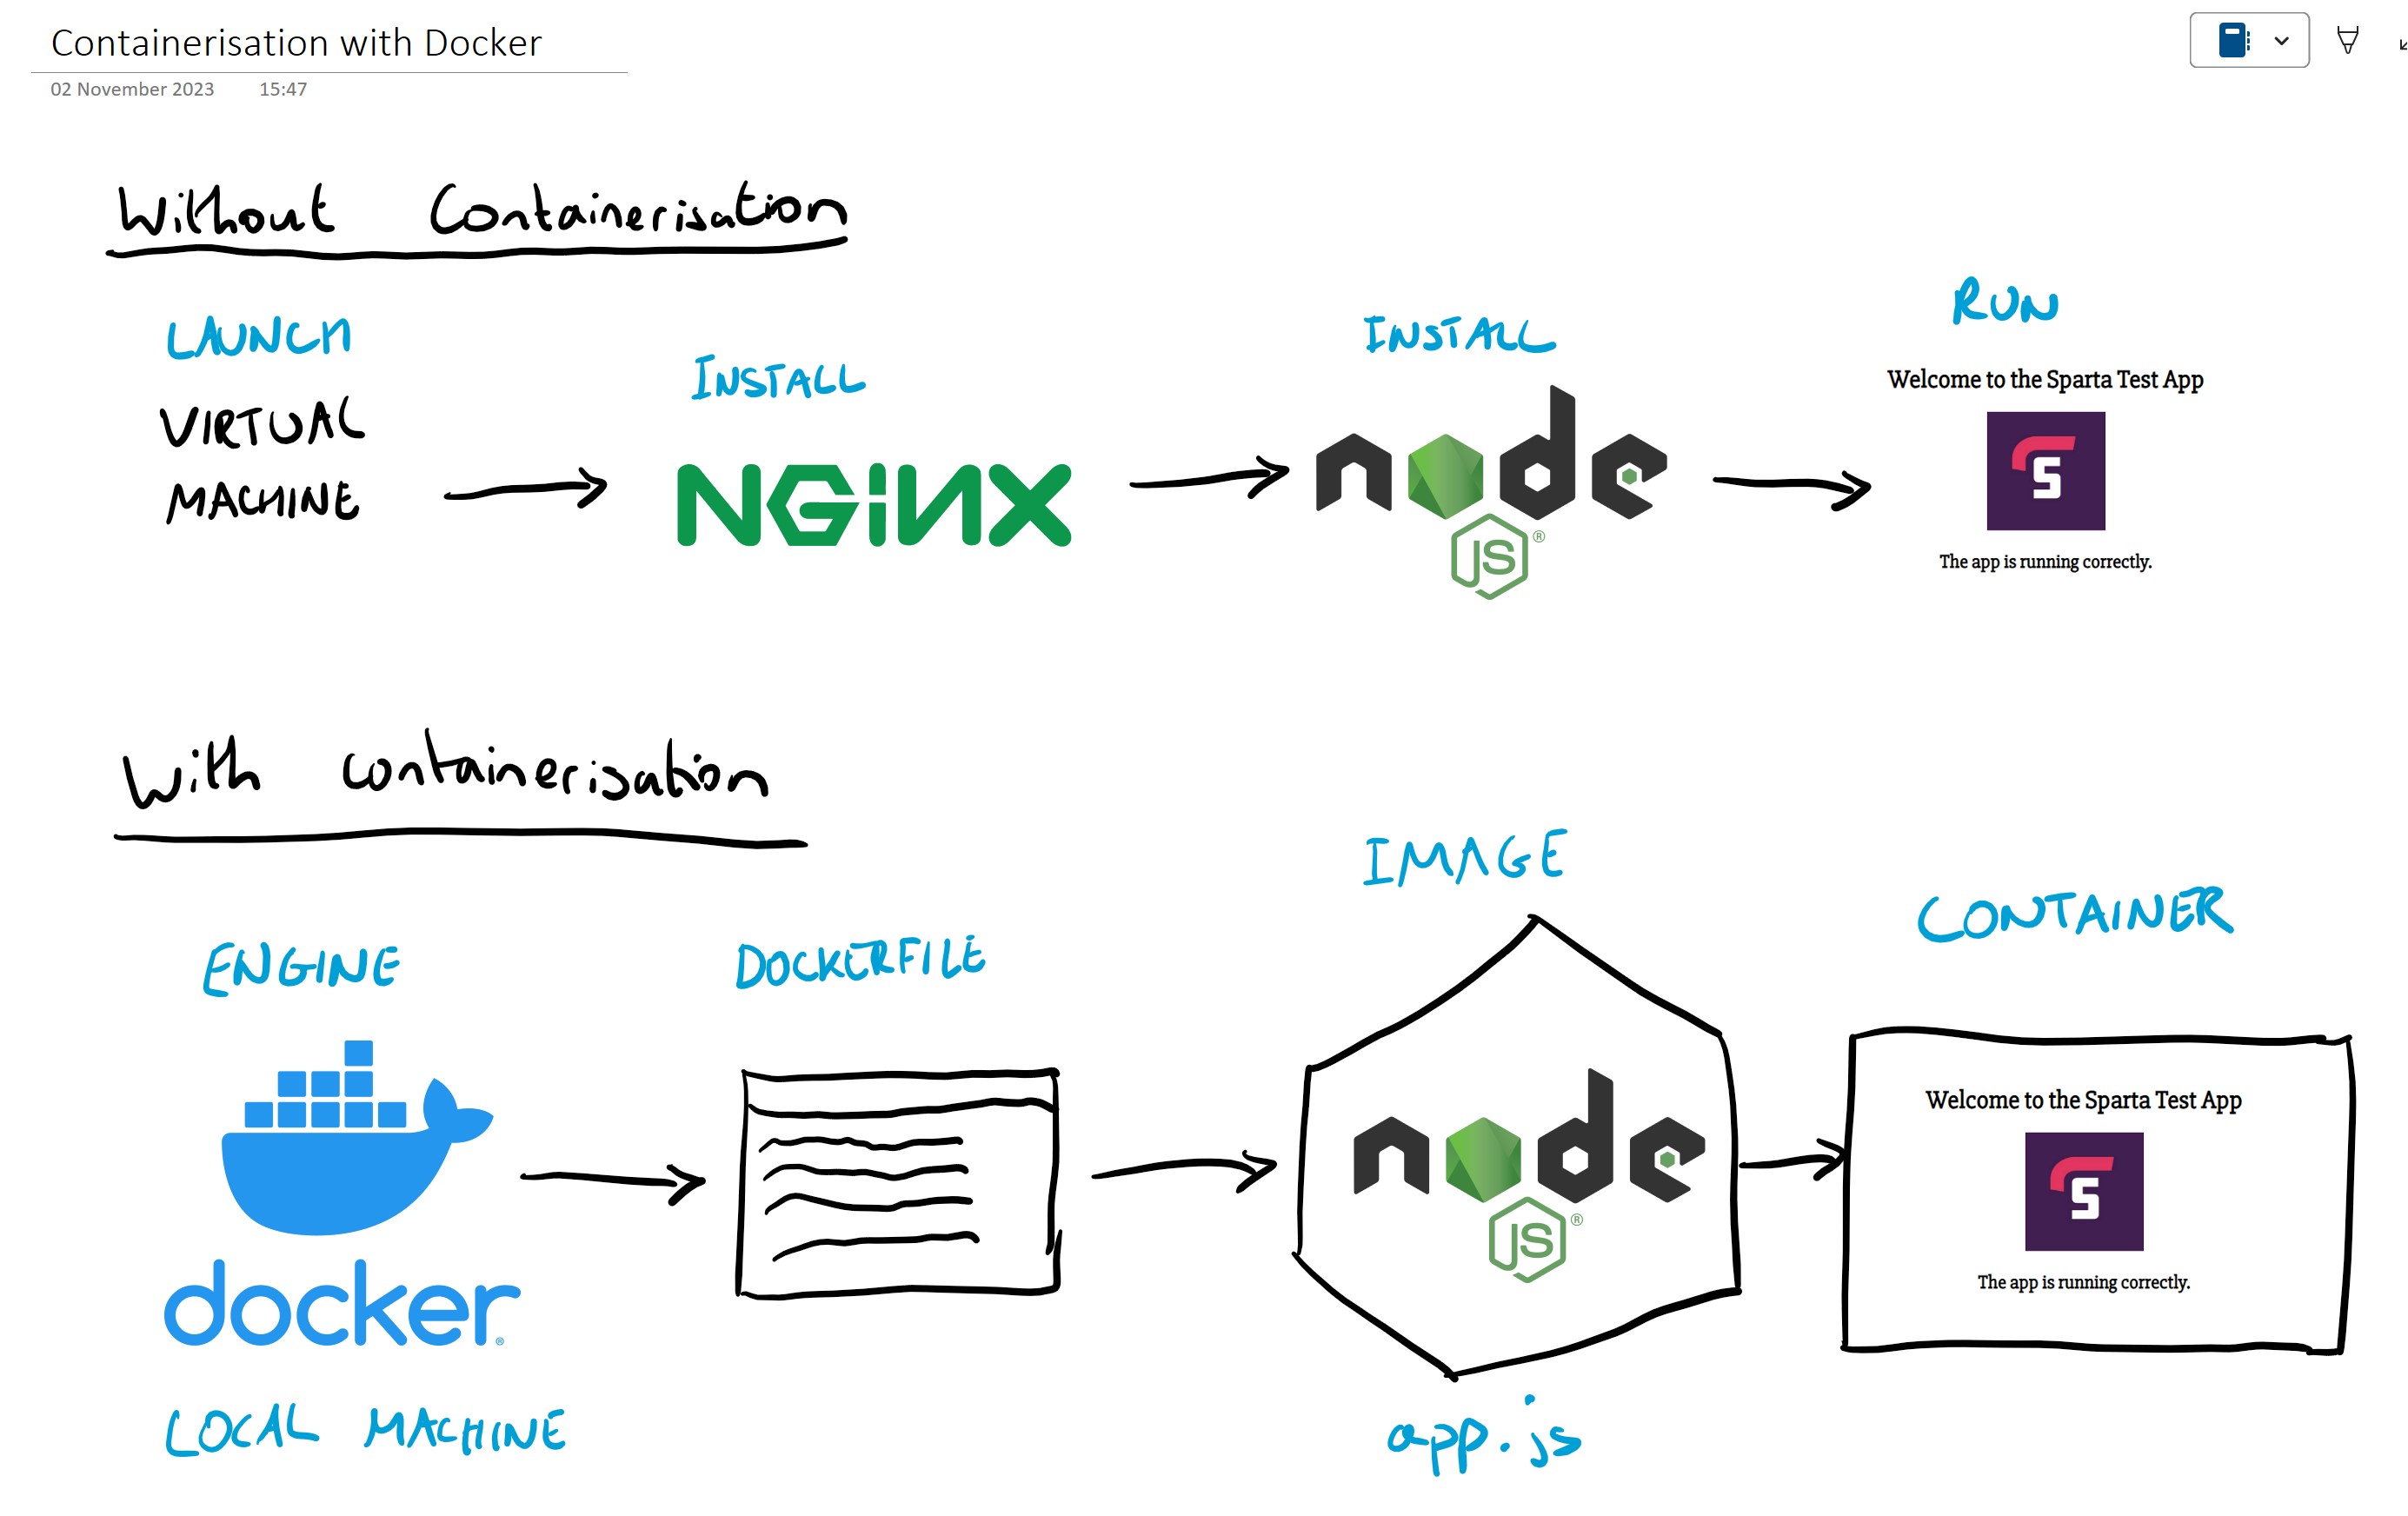 Containerisation with Docker
02 November 2023 15:47
Without Containerisation
LAUNCH
VIRTUAL
MACHINE
INSTALL
NGINX
INSTALL
node
JS®
RUN
Welcome to the Sparta Test App
S
The app is running correctly.
With containerisation
ENGINE
docker®
LOCAL MACHINE
DOCKERFILE
IMAGE
node
JS®
app.js
CONTAINER
Welcome to the Sparta Test App
S
The app is running correctly.